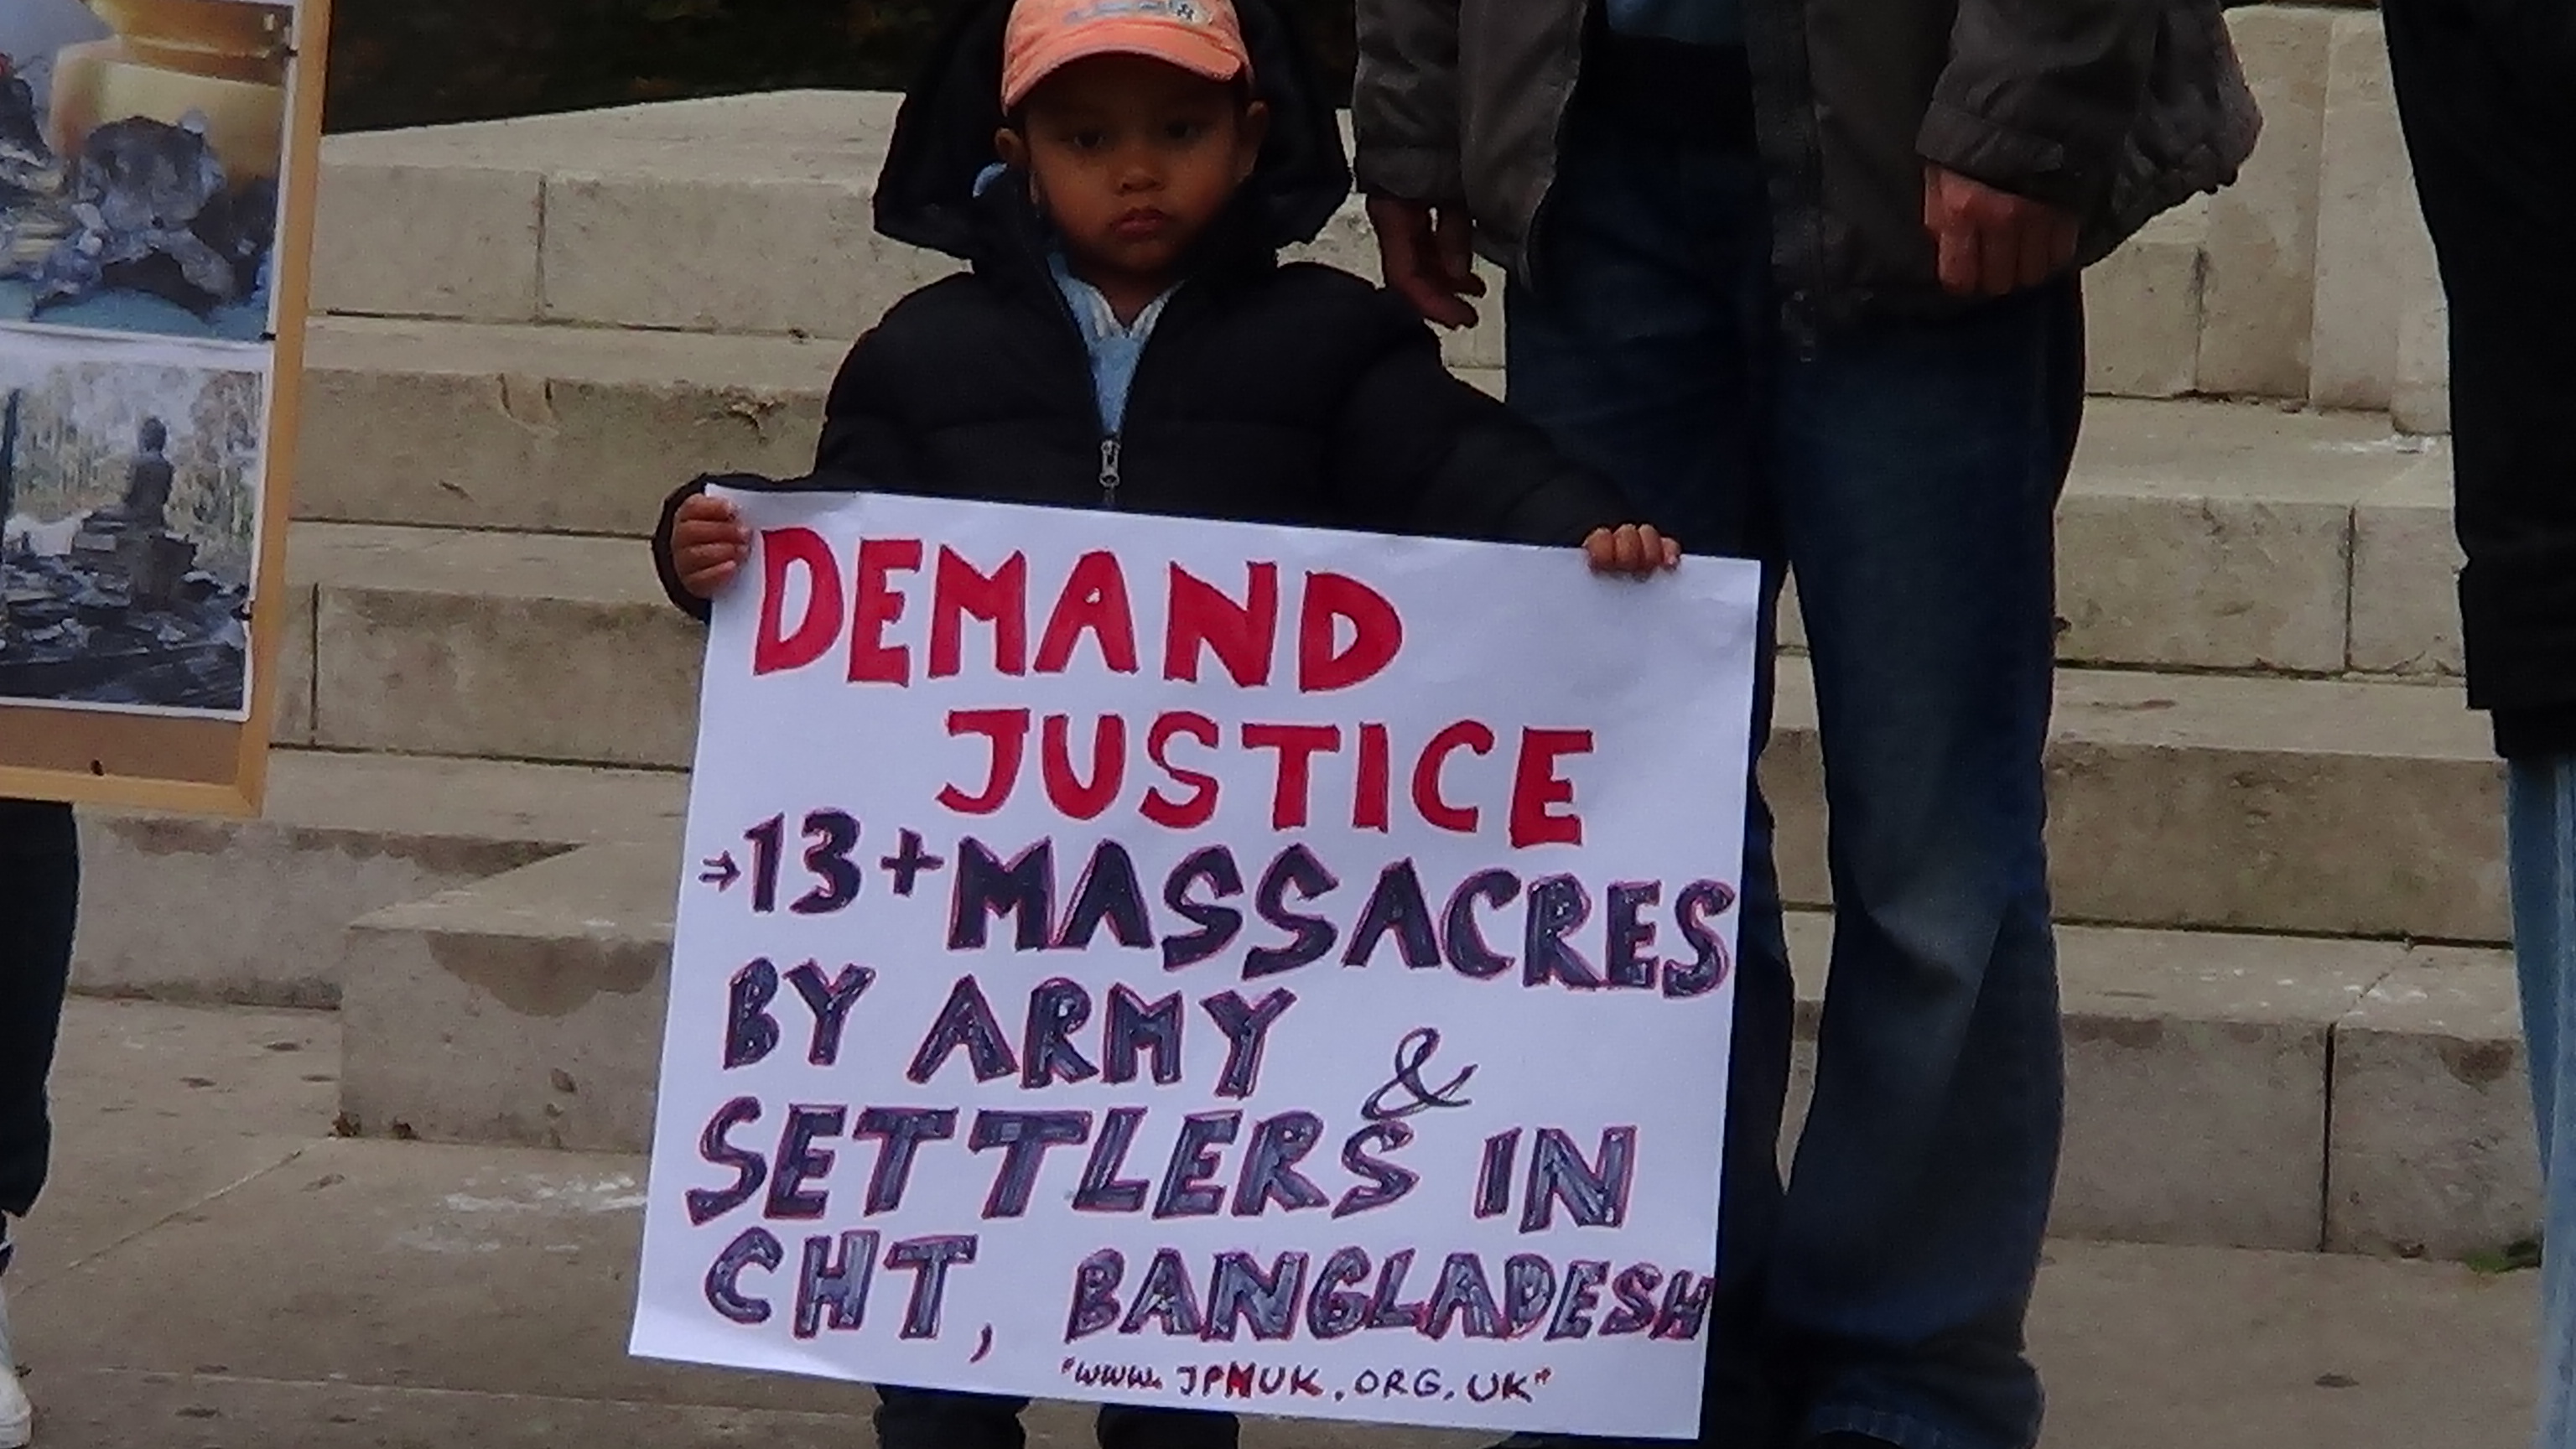 DEMAND
JUSTICE
→13+MASSACRES
BY ARMY &
SETTLERS IN
CHT, BANGLADESH
"www.JPMUK.ORG.UK"